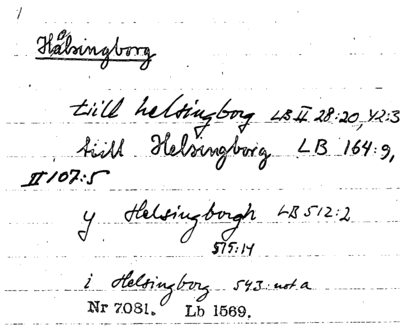 Hälsingborg
tiill helsingborg LB II 28:20, 42:3
tiill Helsingborg LB 164:9,
II 107:5
y Helsingborgh LB 512:2
515:14
i Helsingborg 543: not a
Nr 7081. Lb 1569.